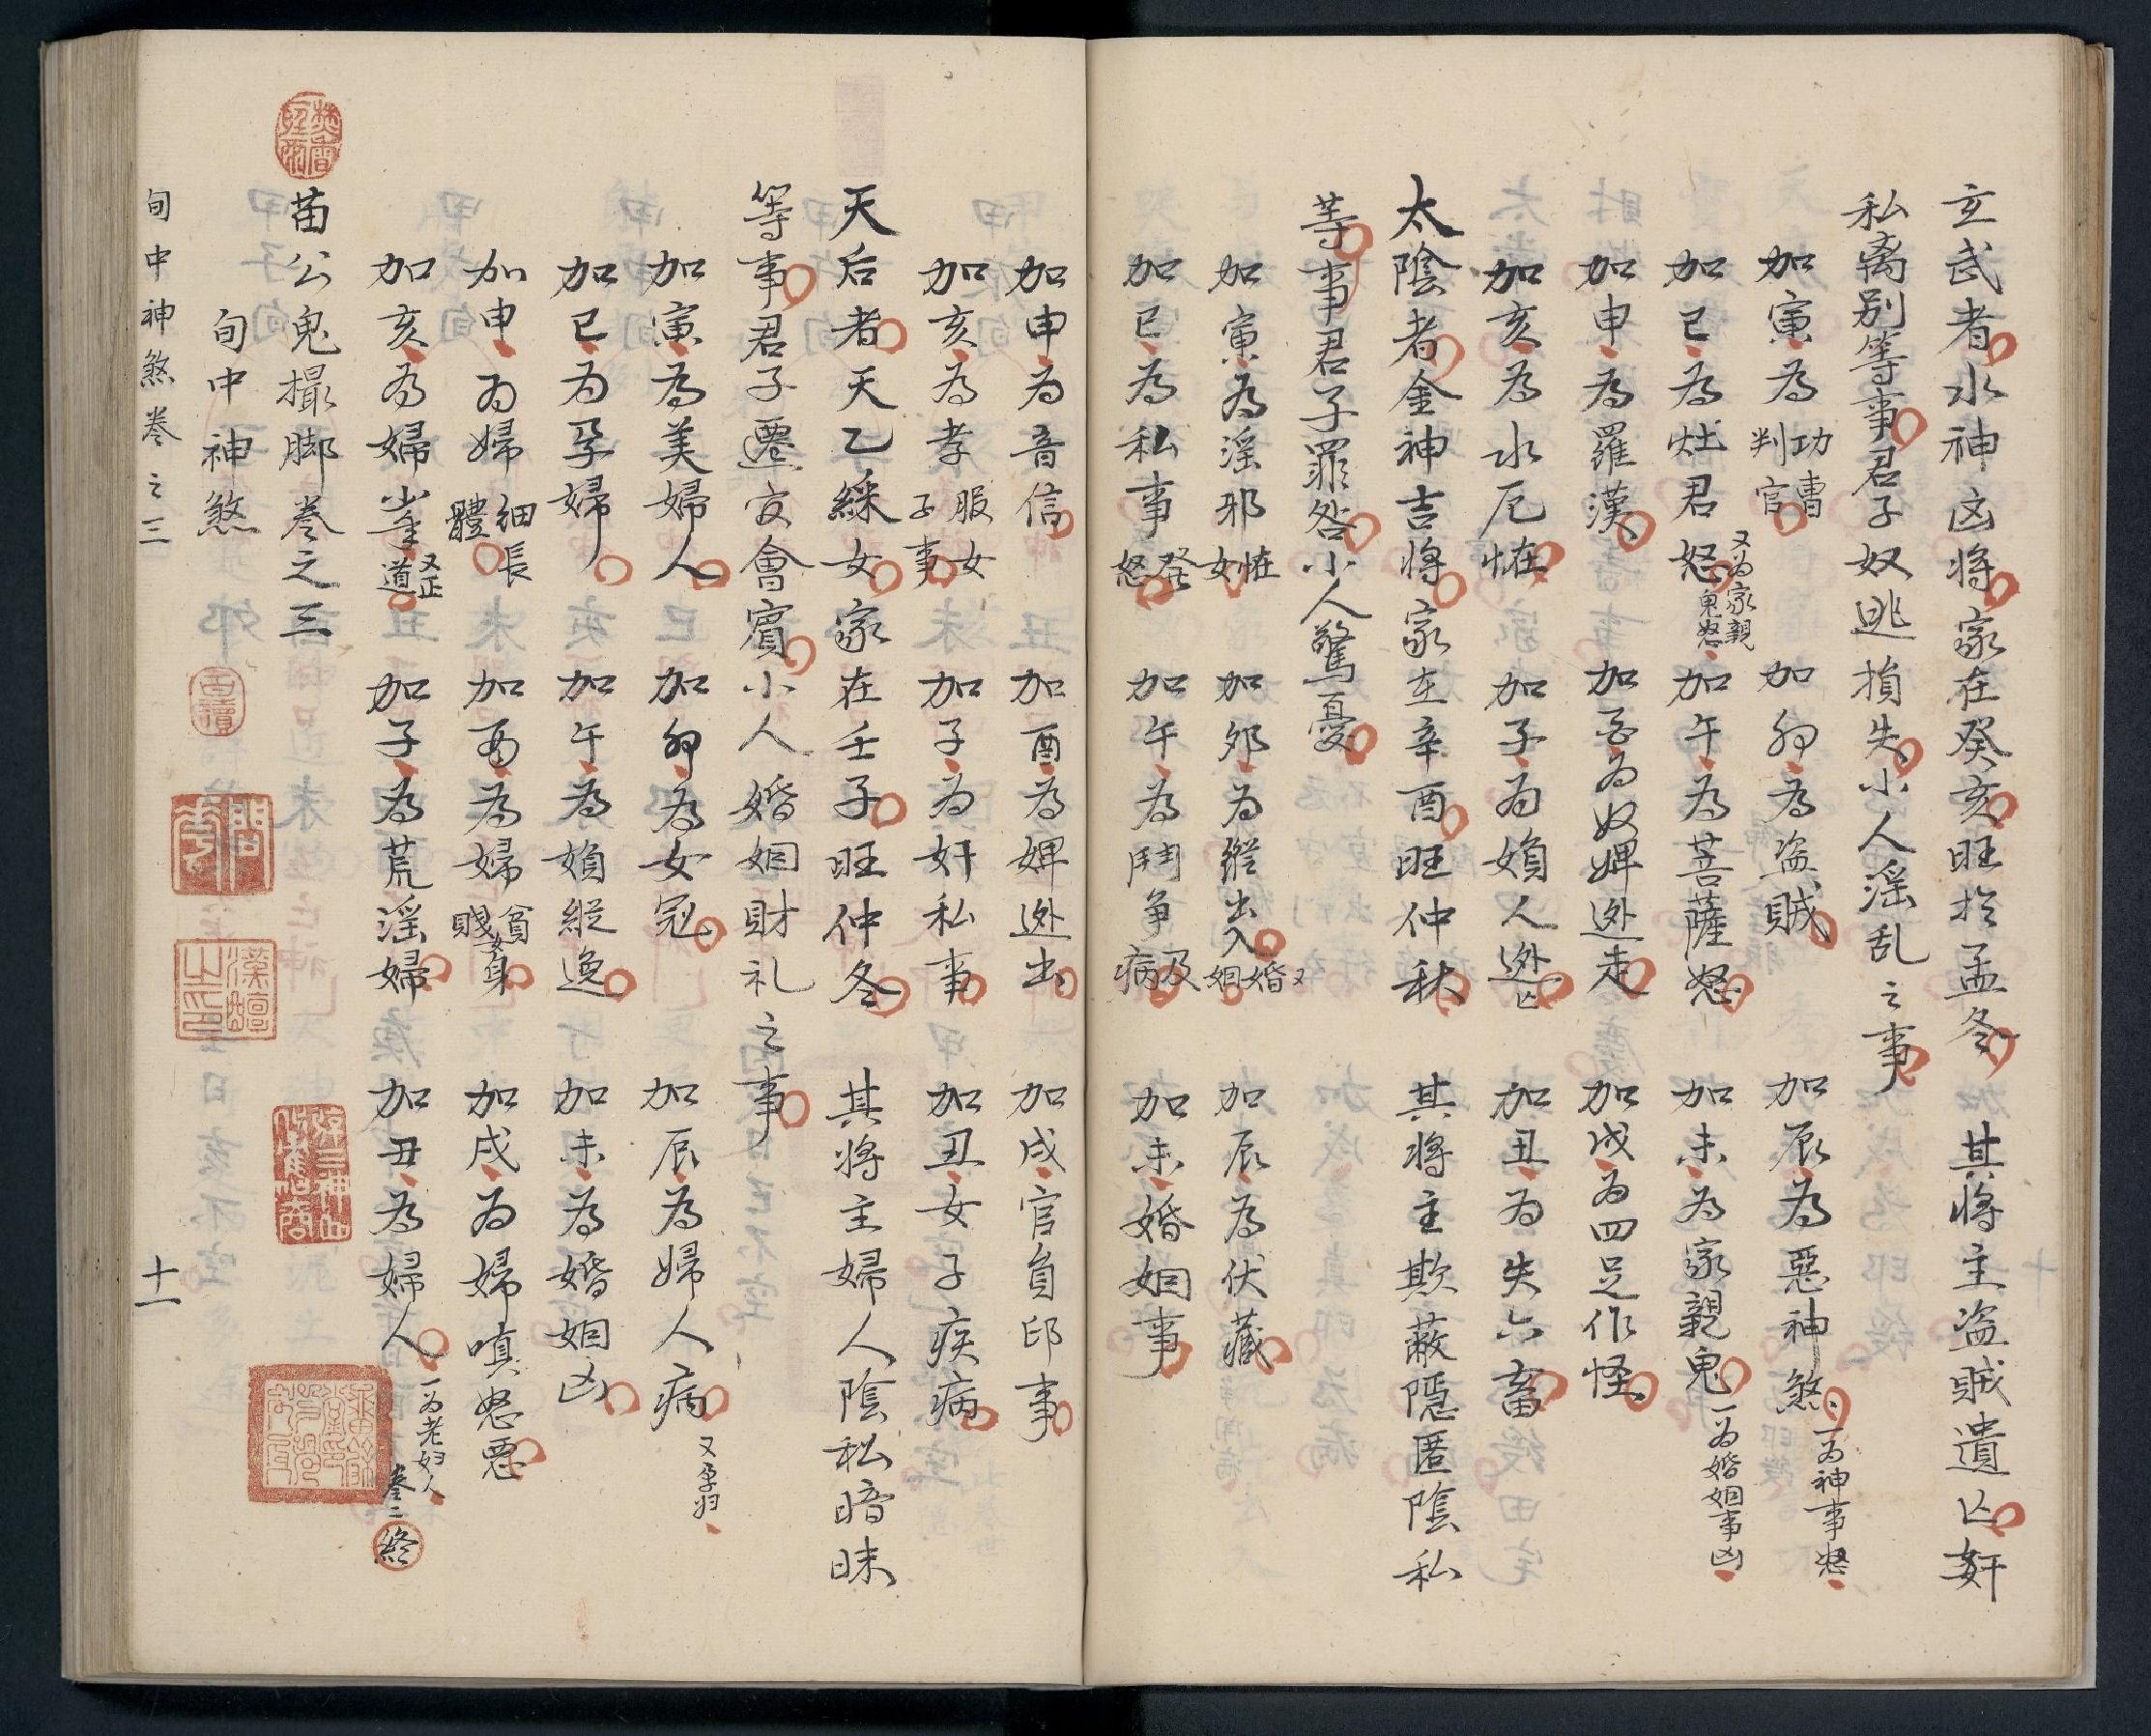 玄武者水神凶將家在癸亥旺於孟冬 其將主盜賊遺亡奸
私离別等事君子奴逃損失小人淫乱之事
加寅為功曹判官 加卯為盜賊 加辰為惡神煞一为神事怒
加巳為灶君怒又为家親鬼怒 加午為菩薩怒 加未為家親鬼一为婚姻事凶
加申為羅漢 加酉为奴婢迯走 加戌为四足作怪
加亥為水厄恠 加子为婦人迯亡 加丑为失六畜
太陰者金神吉將家在辛酉旺仲秋 其將主欺蔽隱匿陰私
等事君子罪咎小人驚憂
加寅為淫邪恠女 加卯为釐出入又婚姻 加辰為伏藏
加巳為私事發怒 加午為鬥争及病 加未婚姻事
加申为音信 加酉為婢迯出 加戌官員印事
加亥為孝服女子事 加子为奸私事 加丑女子疾病
天后者天乙綵女家在壬子旺仲冬 其將主婦人陰私暗昧
等事君子遷官會賓小人婚姻財礼之事
加寅為美婦人 加卯為女冠 加辰為婦人病又孕妇
加巳为孕婦 加午為婦縱逸 加未為婚姻凶
加申为婦細長體 加酉為婦貧賤女身 加戌为婦嗔怒惡
加亥为婦掌又正道 加子為荒淫婦 加丑為婦人一为老妇人 卷二終
苗公鬼撮脚卷之三
旬中神煞
旬中神煞卷之三 十一